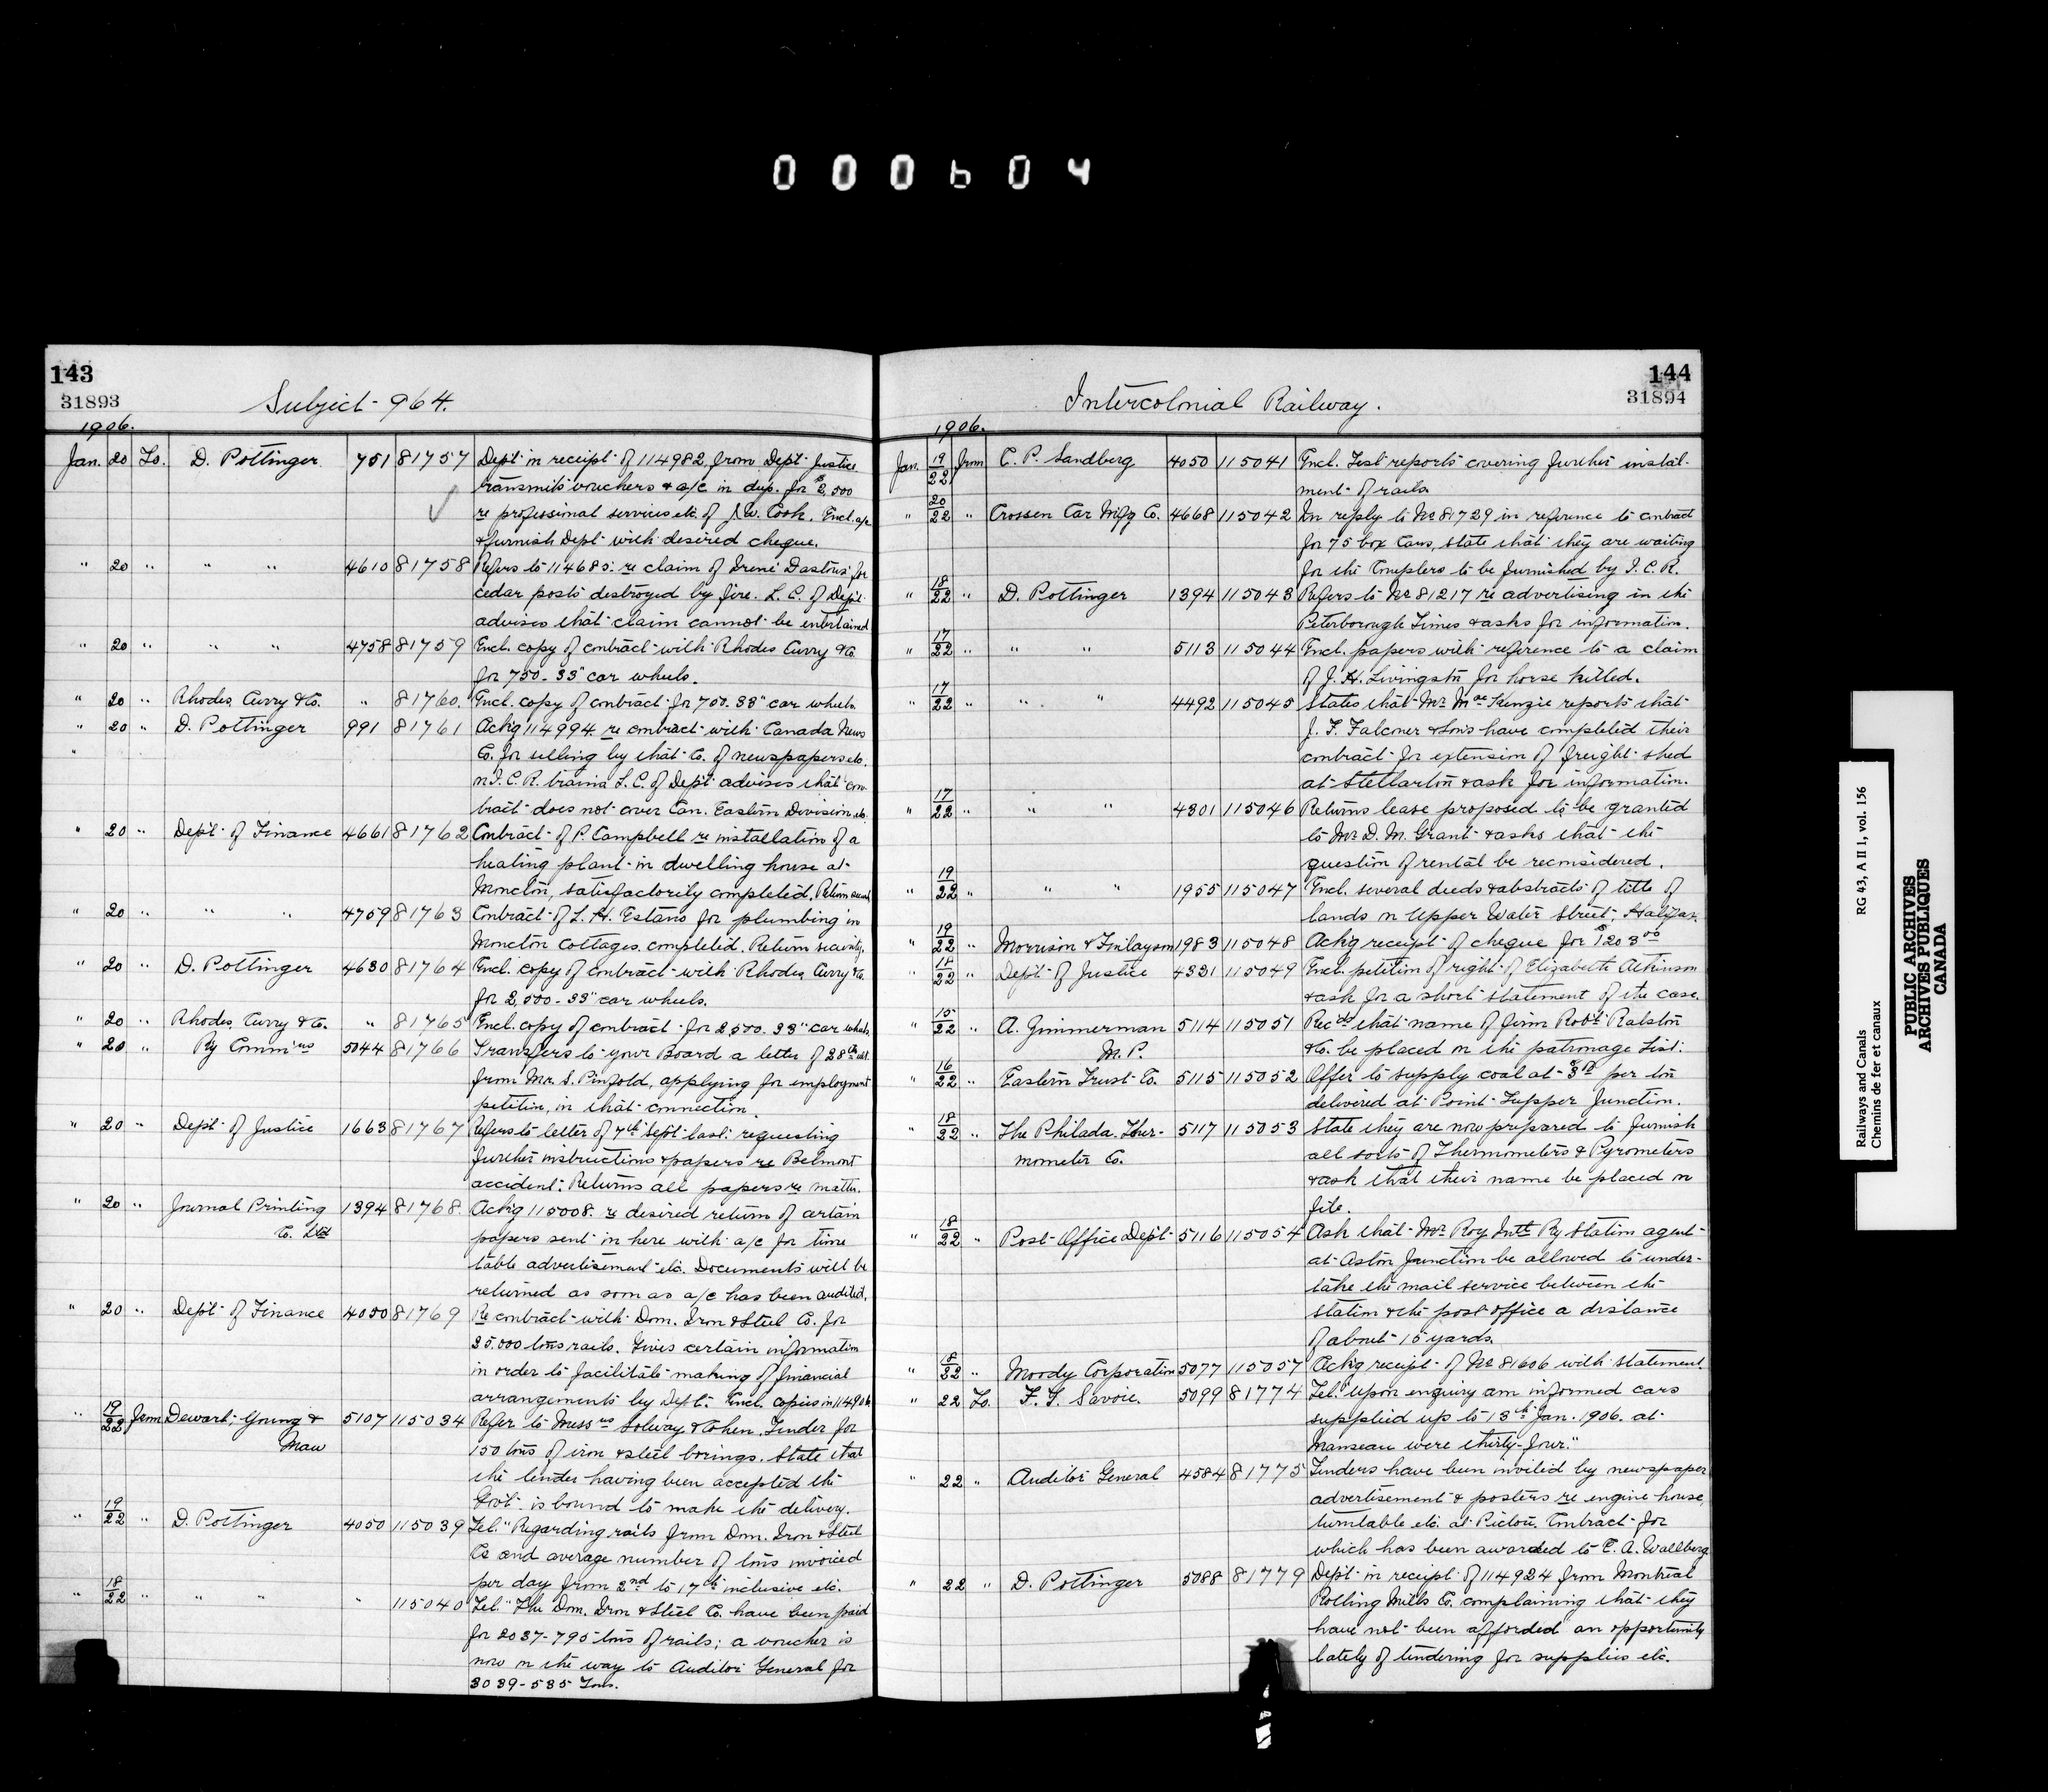 000604
143
31893
Subject - 964.
1906.
Jan. 20 To. D. Pottinger 751 81757 Dep't in receipt of 114982, from Dep't Justice
transmits vouchers & a/c in dup. for $2,500
re professional services etc. of J. W. Cook. Encl. a/c
& furnish Dep't with desired cheque.
" 20 " " " 4610 81758 Refers to 114685: re claim of Irené Dastous for
cedar posts destroyed by fire. L. C. of Dep't
advises that claim cannot be entertained
" 20 " " " 4758 81759 Encl. copy of contract with Rhodes Curry & Co.
for 750 - 33" car wheels.
" 20 " Rhodes, Curry & Co. " 81760. Encl. copy of contract for 750 - 33" car wheels.
" 20 " D. Pottinger 991 81761 Ack'g 114994 re contract with Canada News
Co. for selling by that Co. of newspapers etc.
on I. C. R. trains L. C. of Dep't advises that con-
tract does not cover Can. Eastern Division etc.
" 20 " Dep't of Finance 4661 81762 Contract of P. Campbell re installation of a
heating plant in dwelling house at
Moncton, satisfactorily completed. Return
" 20 " " " 4759 81763 Contract of L. H. Estano for plumbing in
Moncton Cottages completed. Return security.
" 20 " D. Pottinger 4630 81764 Encl. copy of contract with Rhodes, Curry & Co.
for 2,500 - 33" car wheels.
" 20 " Rhodes, Curry & Co. " 81765 Encl. copy of contract for 2,500 - 33" car wheels
" 20 " Ry Comm'rs 5044 81766 Transfers to your Board a letter of 28th ult.
from Mr. S. Pinfold, applying for employment
petition, in that connection.
" 20 " Dep't of Justice 1663 81767 Refers to letter of 7th Sept. last: requesting
further instructions & papers re Belmont
accident: Returns all papers re matter.
" 20 " Journal Printing 1394 81768. Ack'g 115008. re desired return of certain
Co. Ltd papers sent in here with a/c for time
table advertisement etc. Documents will be
returned as soon as a/c has been audited.
" 20 " Dep't of Finance 4050 81769 Re contract with Dom. Iron & Steel Co. for
25.000 tons rails. Gives certain information
in order to facilitate making of financial
arrangements by Dep't. Encl. copies in 114906
" 19/22 from Dewart, Young & 5107 115034 Refer to Messrs Solway & Cohen, Tender for
Maw 150 tons of iron & steel borings. State that
the tender having been accepted the
Gov't is bound to make the delivery.
" 19/22 " D. Pottinger 4050 115039 Tel. "Regarding rails from Dom. Iron & Steel
Co. and average number of tons invoiced
per day from 2nd to 17th inclusive etc.
" 18/22 " " " " 115040 Tel. "The Dom. Iron & Steel Co. have been paid
for 2037-795 tons of rails; a voucher is
now on the way to Auditor General for
3039-535 Tons.
144
31894
Intercolonial Railway.
1906.
Jan. 19/22 from C. P. Sandberg 4050 115041 Encl. Test reports covering further instal-
ment of rails.
" 20/22 " Crossen Car Mf'g Co. 4668 115042 In reply to No 81729 in reference to contract
for 75 box Cars, state that they are waiting
for the Couplers to be furnished by I. C. R.
" 18/22 " D. Pottinger 1394 115043 Refers to No 81217 re advertising in the
Peterborough Times & asks for information.
" 17/22 " " " 5113 115044 Encl. papers with reference to a claim
of J. H. Livingston for horse killed.
" 17/22 " " 4492 115045 States that Mr. MacKenzie reports that
J. F. Falconer & Sons have completed their
contract for extension of freight shed
at Stellarton & ask for information.
" 17/22 " " " 4301 115046 Returns lease proposed to be granted
to Mr. D. M. Grant & asks that the
question of rental be reconsidered.
" 19/22 " " " 1955 115047 Encl. several deeds & abstracts of title of
lands on Upper Water Street, Halifax.
" 19/22 " Morrison & Finlayson 1983 115048 Ack'g receipt of cheque for $1203 00
" 18/22 " Dep't of Justice 4331 115049 Encl. petition of right of Elizabeth Atkinson
& ask for a short statement of the case.
" 15/22 " A. Zimmerman 5114 115051 Rec'ds that name of firm Rob't Ralston
M. P. & Co. be placed on the patronage List.
" 16/22 " Eastern Trust Co. 5115 115052 Offer to supply coal at per ton
delivered at Point Tupper Junction.
" 18/22 " The Philada. Ther- 5117 115053 State they are now prepared to furnish
mometer Co. all sorts of Thermometers & Pyrometers
& ask that their name be placed on
file.
" 18/22 " Post Office Dep't 5116 115054 Ask that Mr. Roy Int'l Ry Station agent
at Aston Junction be allowed to under-
take the mail service between the
station & the post office a distance
of about 15 yards.
" 8/22 " Moody Corporation 5077 115057 Ack'g receipt of No 81606 with statement
" 22 To. F. T. Savoie. 5099 81774 Tel. "Upon enquiry am informed cars
supplied up to 13th Jan. 1906. at
Manseau were thirty-four."
" 22 " Auditor General 4584 81775 Tenders have been invited by newspaper
advertisement & posters re engine house,
turntable etc. at Pictou. Contract for
which has been awarded to E. A. Wallberg
" 22 " D. Pottinger 5088 81779 Dep't in receipt of 114924 from Montreal
Rolling Mills Co. complaining that they
have not been afforded an opportunity
lately of tendering for supplies etc.
Railways and Canals RG 43, A II 1, vol. 156
Chemins de fer et canaux
PUBLIC ARCHIVES
ARCHIVES PUBLIQUES
CANADA